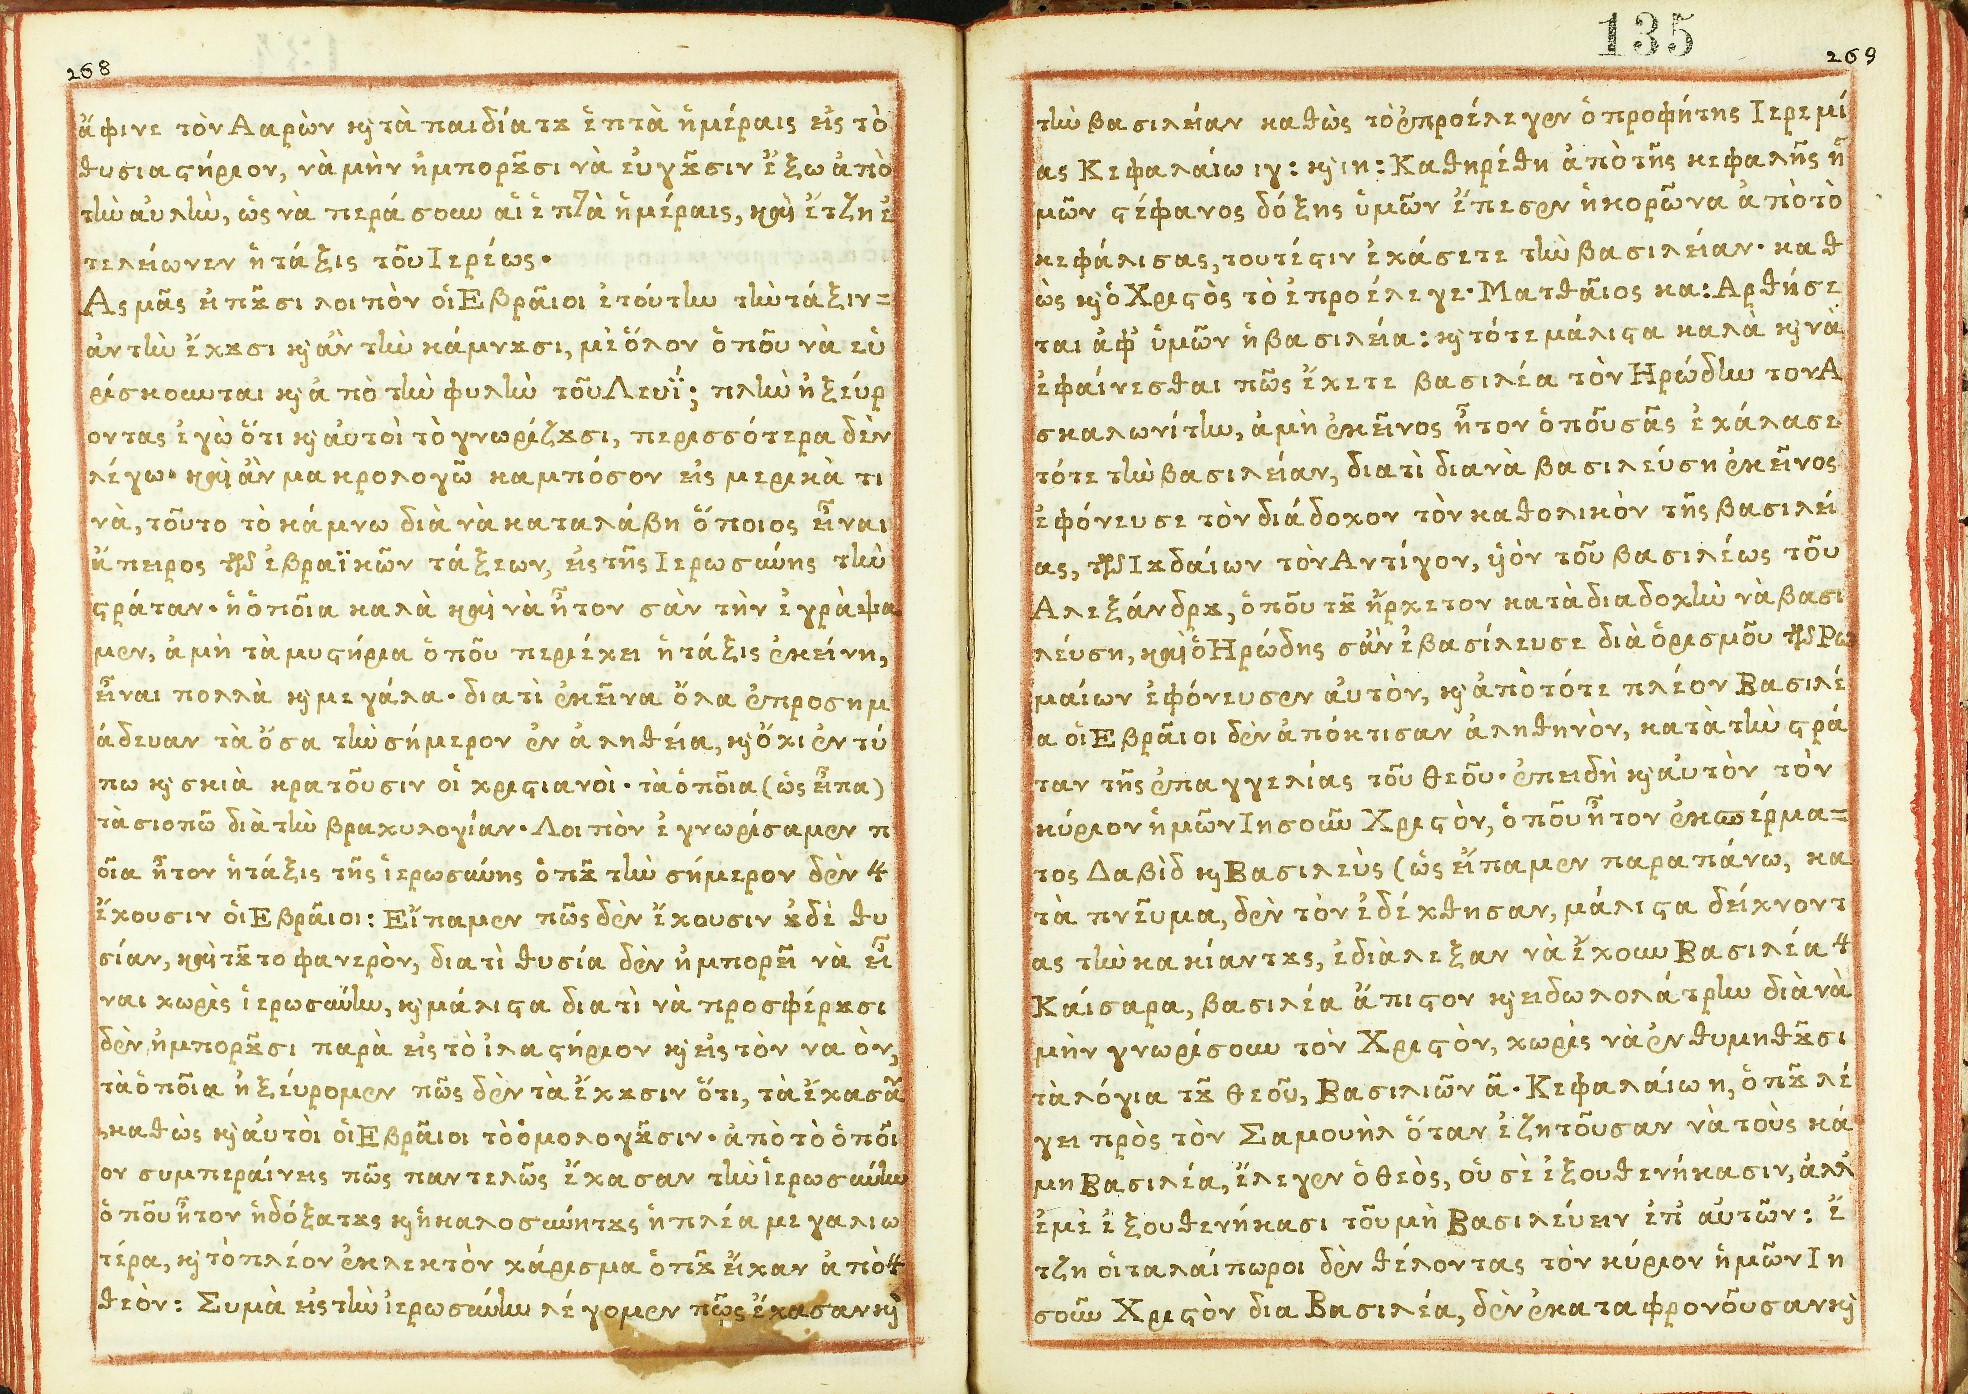 268
ἄφινε τὸν Ααρὼν κ̀ τὰ παιδία τȣ ἑπτὰ ἡμέραις εἰς τὸ
θυσιαϛήριον, νὰ μὴν ἠμπορȣ͂σι νὰ εὐγȣ͂σιν ἔξω ἀπὸ
τὴν αὐλὴν, ὡς νὰ περάσουν αἱ ἑπτὰ ἡμέραις, καὶ ἔτζη ἐ
τελείωνεν ἡ τάξις τοῦ Ιερέως.
Ας μᾶς εἰπȣ͂σι λοιπὸν οἱ Εβραῖοι ἐτούτην τὴν τάξιν=
ἀν τὴν ἔχȣσι κ̀ ἀν τὴν κάμνȣσι, μὲ ὅλον ὁποῦ νὰ εὑ
ρίσκουνται κ̀ ἀπὸ τὴν φυλὴν τοῦ Λευΐ; πλὴν ἠξεύρ
οντας ἐγὼ ὅτι κ̀ αὐτοὶ τὸ γνωρίζȣσι, περισσότερα δὲν
λέγω· καὶ ἀν μακρολογῶ καμπόσον εἰς μερικὰ τι
νὰ, τοῦτο τὸ κάμνω διὰ νὰ καταλάβη ὅποιος εἶναι
ἄπειρος τῶν ἑβραϊκῶν τάξεων, εἰς τῆς Ιερωσύνης τὴν
ϛράταν· ἡ ὁποῖα καλὰ καὶ νὰ ἦτον σὰν τὴν ἐγράψα
μεν, ἀμὴ τὰ μυϛήρια ὁποῦ περιέχει ἡ τάξις ἐκείνη,
εἶναι πολλὰ κ̀ μεγάλα· διατὶ ἐκεῖνα ὅλα ἐπροσημ
άδευαν τὰ ὅσα τὴν σήμερον ἐν ἀληθεία, κ̀ ὄχι ἐν τύ
πω κ̀ σκιὰ κρατοῦσιν οἱ χριϛιανοὶ· τὰ ὁποῖα (ὡς εἶπα)
τὰ σιοπῶ διὰ τὴν βραχυλογίαν· Λοιπὸν ἐγνωρίσαμεν π
οῖα ἦτον ἡ τάξις τῆς ἱερωσύνης ὁπȣ͂ τὴν σήμερον δὲν
ἔχουσιν οἱ Εβραῖοι: Εἴπαμεν πῶς δὲν ἔχουσιν ȣδὲ θυ
σίαν, καὶ τȣ͂το φανερὸν, διατὶ θυσία δὲν ἠμπορεῖ νὰ εἶ
ναι χωρὶς ἱερωσύνην, κ̀ μάλιϛα διατὶ νὰ προσφέρȣσι
δὲν ἠμπορȣ͂σι παρὰ εἰς τὸ ἱλαϛήριον κ̀ εἰς τὸν ναὸν,
τὰ ὁποῖα ἠξεύρομεν πῶς δὲν τὰ ἔχȣσιν ὅτι, τὰ ἔχασα
,καθὼς κ̀ αὐτὸι οἱ Εβραῖοι τὸ ὁμολογȣ͂σιν· ἀπὸ τὸ ὁποῖ
ον συμπεραίνεις πῶς παντελῶς ἔχασαν τὴν ἱερωσύνην
ὁποῦ ἦτον ἡ δόξα τȣς κ̀ ἡ καλοσύνη τȣς ἡ πλέα μεγαλιω
τέρα, κ̀ τὸ πλέον ἐκλεκτὸν χάρισμα ὁπȣ͂ εἶχαν ἀπὸ
θεὸν: Συμὰ εἰς τὴν ἱερωσύνην λέγομεν πῶς ἔχασαν κ̀
135
269
τὴν βασιλείαν καθὼς τὸ ἐπροέλεγεν ὁ προφήτης Ιερεμί
ας Κεφαλαίω ιγ: κ̀ ιη: Καθηρέθη ἀπὸ τῆς κεφαλῆς ἡ
μῶν ϛέφανος δόξης ὑμῶν ἔπεσεν ἡ κορῶνα ἀπὸ τὸ
κεφάλι σας, τουτέϛιν ἐχάσετε τὴν βασιλείαν· καθ
ὼς κ̀ ὁ Χριϛὸς τὸ ἐπροέλεγε· Ματθαῖος κα: Αρθήσε
ται ἀφ' ὑμῶν ἡ βασιλεία: κ̀ τότε μάλιϛα καλὰ κ̀ νὰ
ἐφαίνεσθαι πῶς ἔχετε βασιλέα τὸν Ηρώδην τον Α
σκαλωνίτην, ἀμὴ ἐκεῖνος ἦτον ὁποῦ σᾶς ἐχάλασε
τότε τὴν βασιλείαν, διατὶ διανὰ βασιλεύση ἐκεῖνος
ἐφόνευσε τὸν διάδοχον τὸν καθολικὸν τῆς βασιλεί
ας, τῶν Ιȣδαίων τὸν Αντίγον, ὑὸν τοῦ βασιλέως τοῦ
Αλεξάνδρȣ, ὁποῦ τȣ͂ ἤρχετον κατὰ διαδοχὴν νὰ βασι
λεύση, καὶ ὁ Ηρώδης σἀν ἐβασίλευσε διὰ ὁρισμοῦ τῶν Ρω
μαίων ἐφόνευσεν αὐτὸν, κ̀ ἀπὸ τότε πλέον Βασιλέ
α οἱ Εβραῖοι δὲν ἀπόκτισαν ἀληθηνὸν, κατὰ τὴν ϛρά
ταν τῆς ἐπαγγελίας τοῦ θεοῦ· ἐπειδὴ κ̀ αὐτὸν τὸν
κύριον ἡμῶν Ιησοῦν Χριϛὸν, ὁποῦ ἦτον ἐκ σπέρμα=
τος Δαβὶδ κ̀ Βασιλεὺς (ὡς εἴπαμεν παραπάνω, κα
τὰ πνεῦμα, δὲν τὸν ἐδέχθησαν, μάλιϛα δείχνοντ
ας τὴν κακίαν τȣς, ἐδιάλεξαν νὰ ἔχουν Βασιλέα
Καίσαρα, βασιλέα ἄπιϛον κ̀ ειδωλολάτρην διὰ νὰ
μὴν γνωρίσουν τὸν Χριϛὸν, χωρὶς νὰ ἐνθυμηθȣ͂σι
τὰ λόγια τȣ͂ θεοῦ, Βασιλιῶν ᾶ· Κεφαλαίω η, ὁπȣ͂ λέ
γει πρὸς τὸν Σαμουὴλ ὅταν ἐζητοῦσαν νὰ τοὺς κά
μη Βασιλέα, ἔλεγεν ὁ θεὸς, οὐ σὲ ἐξουθενήκασιν, ἀλλ'
ἐμὲ ἐξουθενήκασι τοῦ μὴ Βασιλεύειν ἐπ' αὐτῶν: ἔ
τζη οἱ ταλαίπωροι δὲν θέλοντας τὸν κύριον ἡμῶν Ιη
σοῦν Χριϛὸν δια Βασιλέα, δὲν ἐκαταφρονοῦσαν κ̀